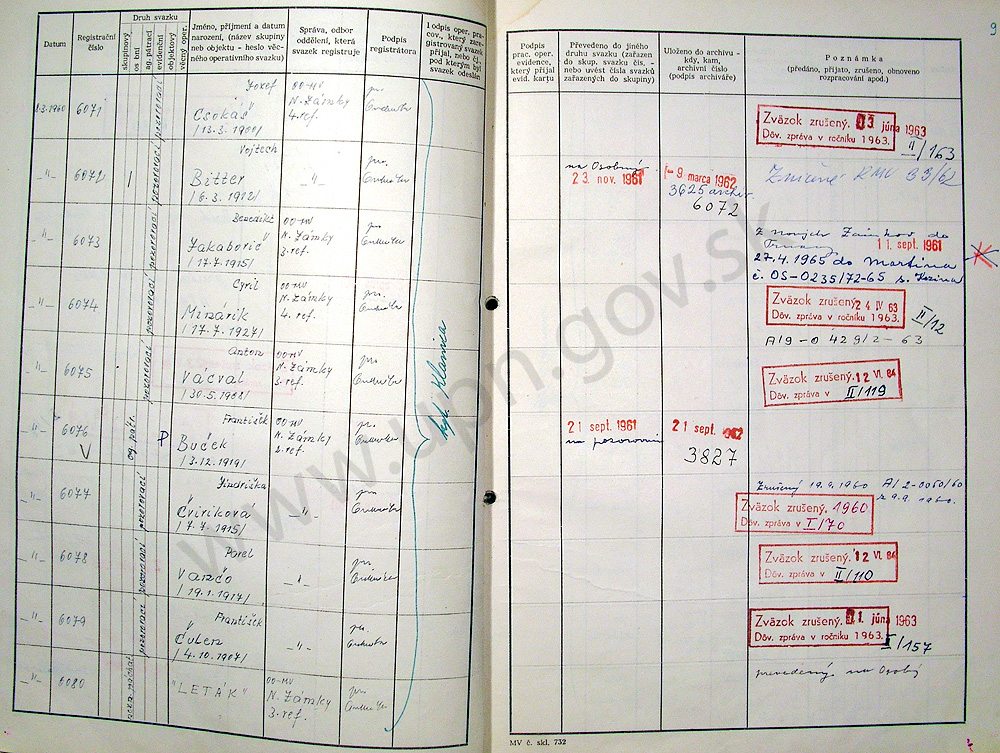 9
Datum
Registrační
číslo
Druh svazku
skupinový
osobní
ag. pátrací
evidenční
objektový
věcný oper.
Jméno, příjmení a datum
narození, (název skupiny
neb objektu - heslo věc-
ného operativního svazku)
Správa, odbor
oddělení, která
svazek registruje
Podpis
registrátora
Podpis oper. pra-
cov., který zare-
gistrovaný svazek
přijal, nebo čís.
pod kterým byl
svazek odeslán
Podpis
prac. oper.
evidence,
který přijal
evid. kartu
Převedeno do jiného
druhu svazku (zařazen
do skup. svazku čís. -
nebo uvést čísla svazků
zařazených do skupiny)
Uloženo do archivu -
kdy, kam,
archivní číslo
(podpis archiváře)
Poznámka
(předáno, přijato, zrušeno, obnoveno
rozpracování apod.)
2.3.1960 6071 pozorovací Jozef
Csokáš
/13.3.1900/
OO-MV
N. Zámky
4. ref.
Zväzok zrušený. 03. júna 1963
Dôv. zpráva v ročníku 1963. II/163
-"- 6072 pozorovací Vojtech
Bitter
/6.3.1912/
-"-
na Osobný
23. nov. 1961
- 9. marca 1962
3625 archiv.
6072
Zničené KMV 33/62
-"- 6073 pozorovací Benedikt
Jakabovič
/17.7.1915/
OO-MV
N. Zámky
3. ref.
z Nových Zámkov do
Trnavy 11. sept. 1961
27.4.1965 do Martina
č. OS-0235/72-65 s. Kozina
-"- 6074 pozorovací Cyril
Minárik
/17.7.1927/
OO-MV
N. Zámky
4. ref.
Zväzok zrušený. 24 IV 63
Dôv. zpráva v ročníku 1963. II/12
A/9-0429/2-63
-"- 6075 pozorovací Anton
Václav
/30.5.1908/
OO-MV
N. Zámky
3. ref.
Zväzok zrušený. 12 VI. 84
Dôv. zpráva v II/119
-"- 6076 ag. pátr. P František
Buček
/3.12.1919/
OO-MV
N. Zámky
2. ref.
21 sept. 1961
na pozorovací
21 sept. 1962
3827
-"- 6077 pozorovací Jindriška
Čviriková
/7.7.1915/
-"-
Zrušený 19.9.1960 A/2-0060/60
z 9.9.1960.
Zväzok zrušený. 1960
Dôv. zpráva v I/70
-"- 6078 pozorovací Pavel
Vančo
/19.1.1917/
-"-
Zväzok zrušený. 12 VI. 84
Dôv. zpráva v II/110
-"- 6079 pozorovací František
Čulen
/4.10.1907/
-"-
Zväzok zrušený. 01. júna 1963
Dôv. zpráva v ročníku 1963. I/157
-"- 6080 "LETÁK"
OO-MV
N. Zámky
3. ref.
prevedený na Osobý
MV č. skl. 732
www.upn.gov.sk